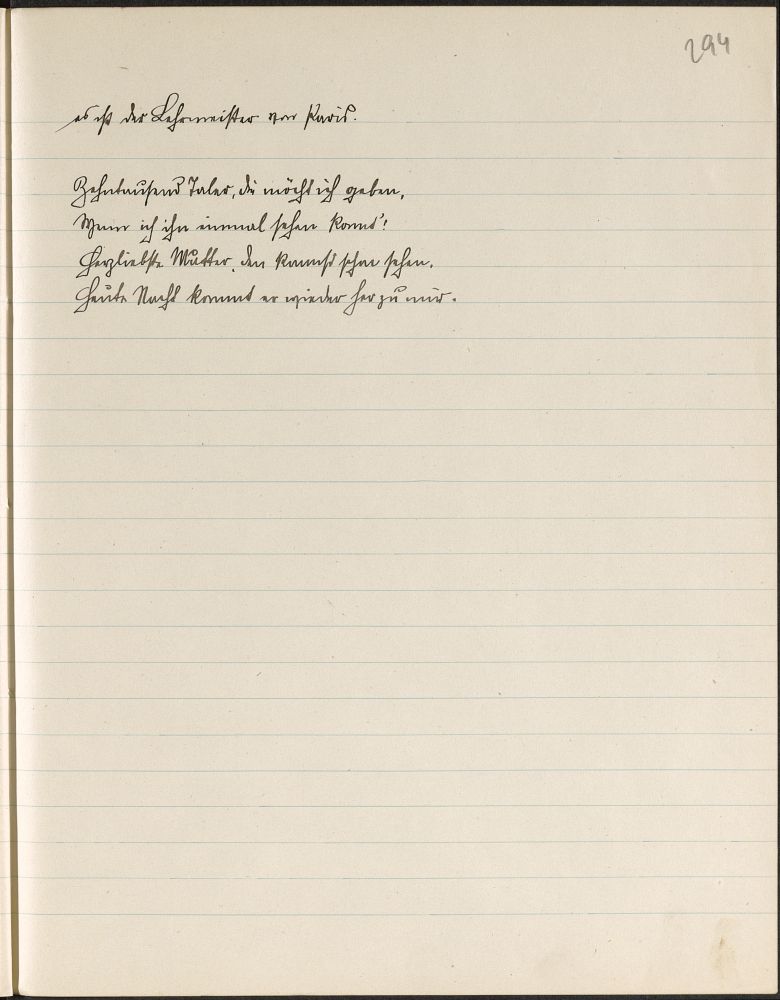 294
es ist der Lehrmeister von Paris.
Zehntausend Taler, die möcht ich geben,
Wenn ich ihn einmal sehen konnt'!
Herzliebste Mutter, den kannst schon sehen.
Heute Nacht kommt er wieder her zu mir.